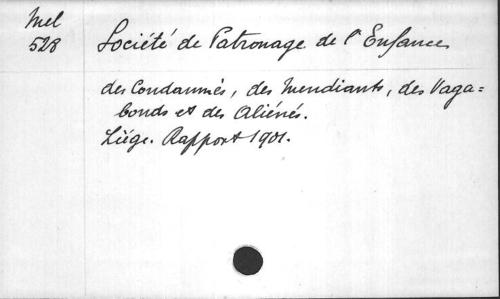 Mel
528
Société de Patronage de l'Enfance
des Condamnés, des Mendiants, des Vaga=
bonds et des Aliénés.
Liége. Rapport 1901.